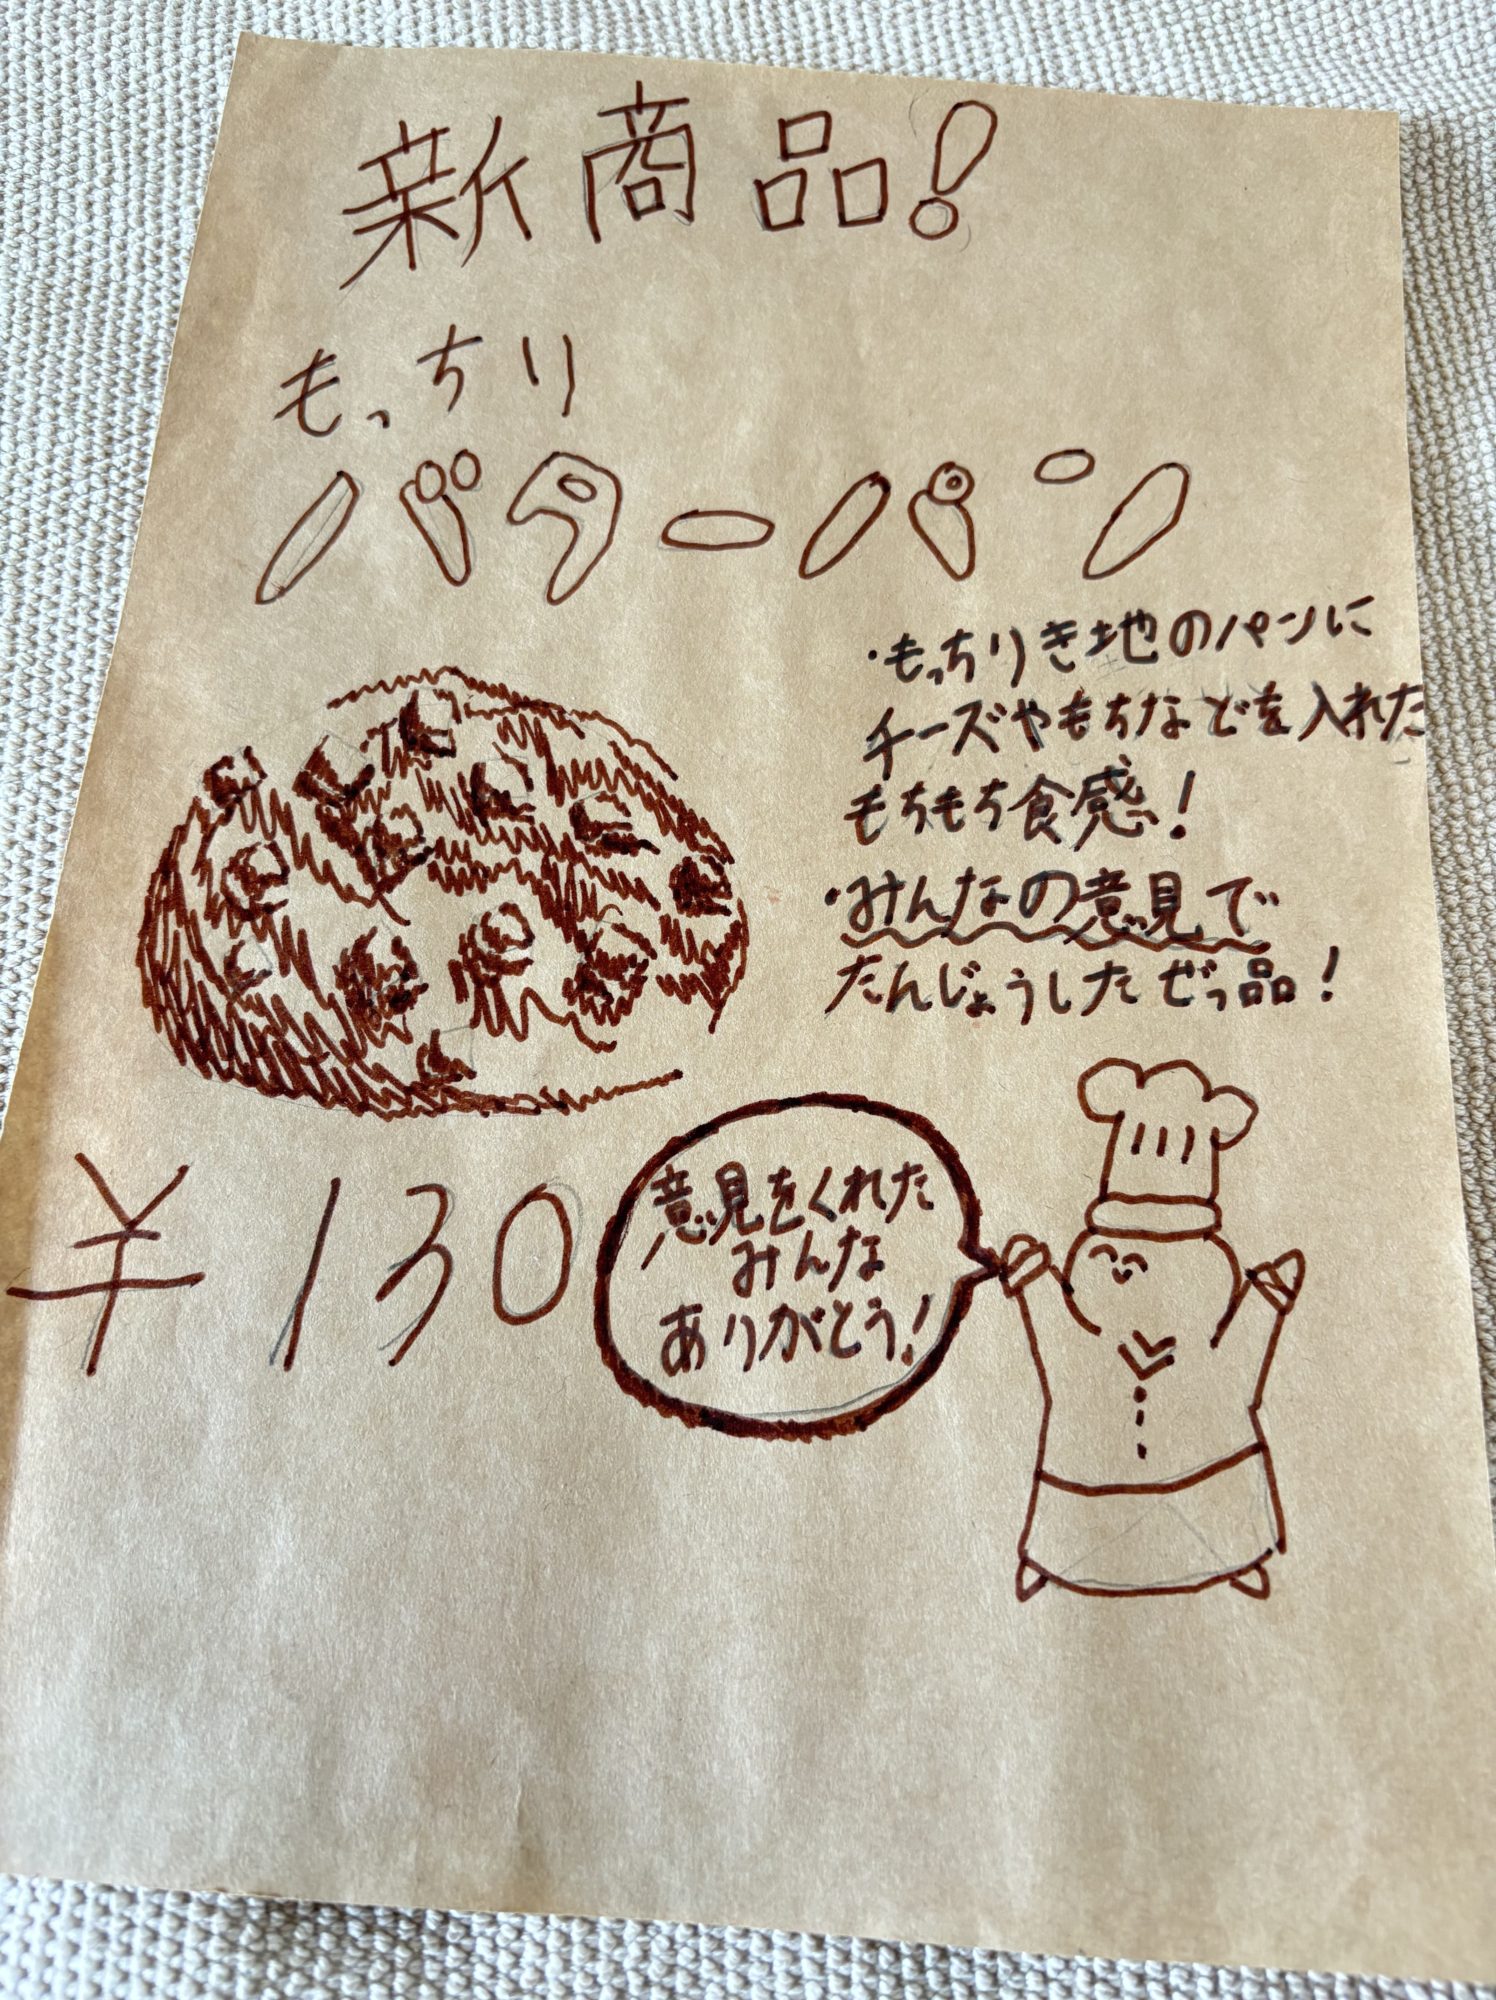 新商品!
もっちり
バターパン
・もっちりき地のパンに
チーズやもちなどを入れた
もちもち食感!
・みんなの意見で
たんじょうしたぜっ品!
¥130
意見をくれた
みんな
ありがとう!